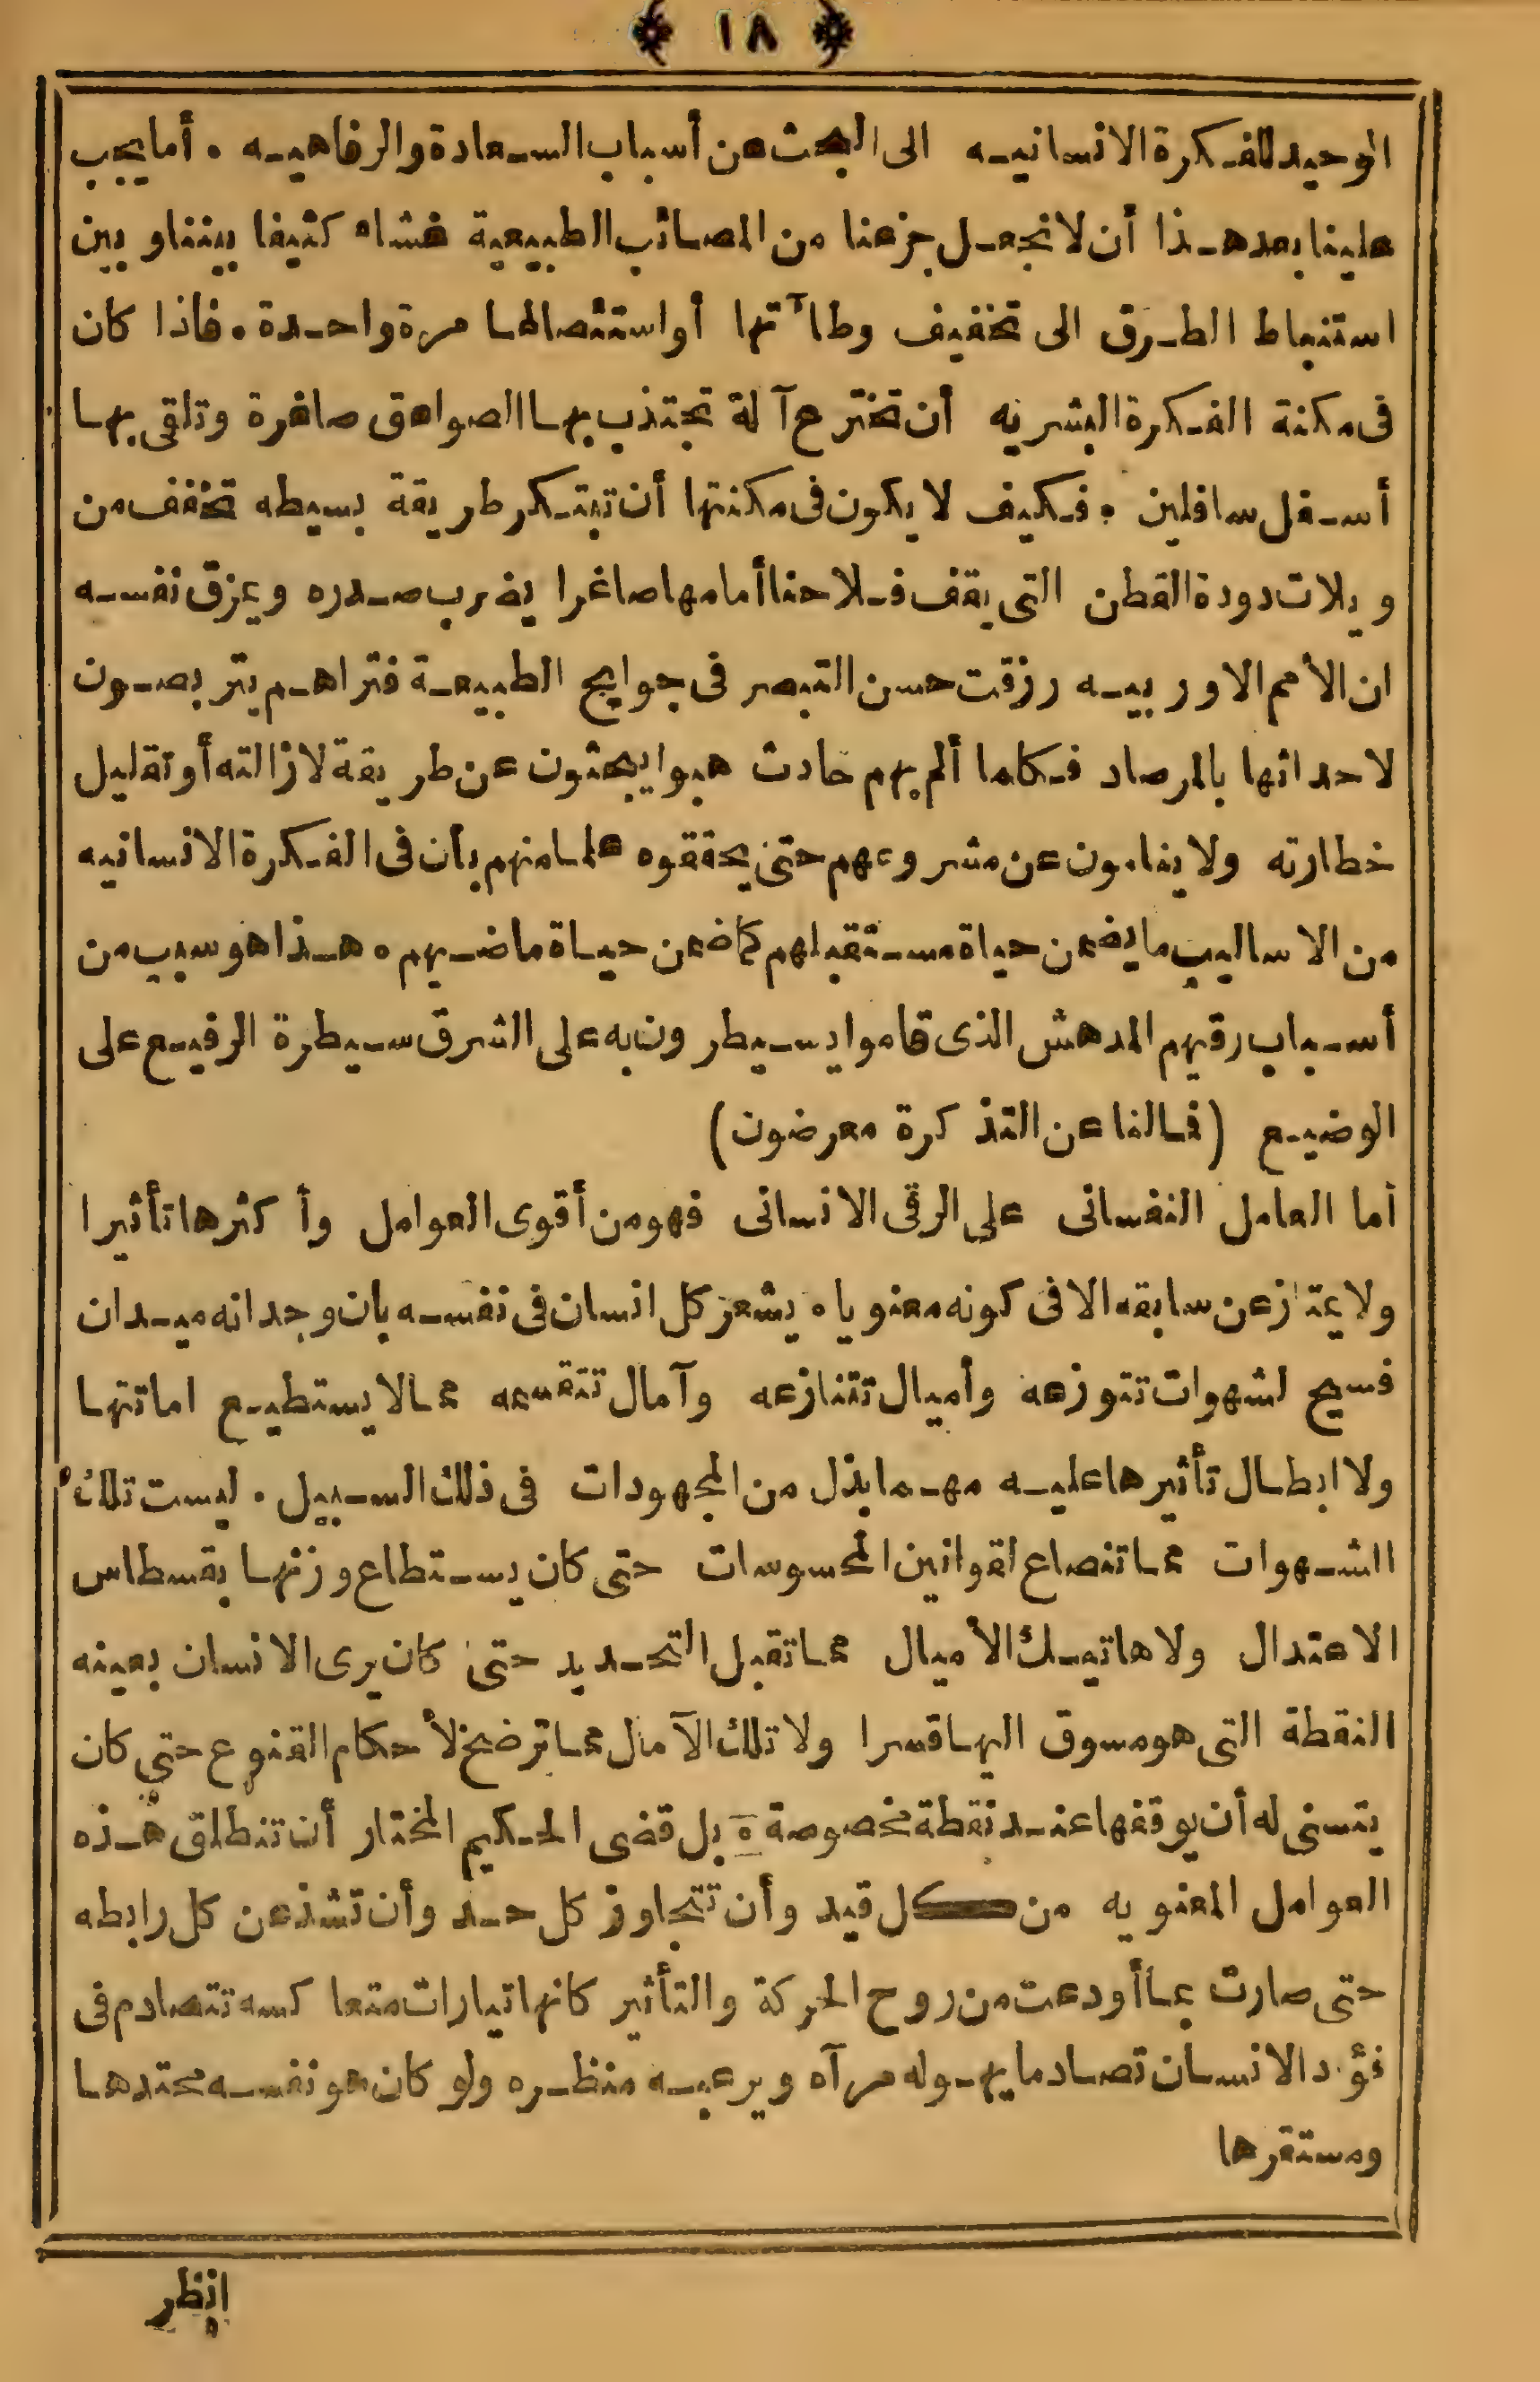 ﴿ ١٨ ﴾
الوحيد للفكرة الانسانيه الى البحث عن أسباب السعادة والرفاهيه . أما يجب
علينا بعد هذا أن لا نجعل جزعنا من المصائب الطبيعية غشاء كثيفا بيننا وبين
استنباط الطرق الى تخفيف وطأتها أو استئصالها مرة واحدة . فاذا كان
فى مكنة الفكرة البشريه أن تخترع آلة تجتذب بها الصواعق صاغرة وتلقى بها
أسفل سافلين . فكيف لا يكون فى مكنتها أن تبتكر طريقة بسيطه تخفف من
ويلات دودة القطن التى يقف فلاحنا أمامها صاغرا يضرب صدره ويمزق نفسه
ان الأمم الاوربيه رزقت حسن التبصر فى جوايح الطبيعة فتراهم يتربصون
لاحداثها بالمرصاد فكلما ألم بهم حادث هبوا يبحثون عن طريقة لازالته أو تقليل
خطارته ولا ينامون عن مشروعهم حتى يحققوه علما منهم بأن فى الفكرة الانسانيه
من الاساليب ما يضمن حياة مستقبلهم كما ضمن حياة ماضيهم . هذا هو سبب من
أسباب رقيهم المدهش الذى قاموا يسيطرون به على الشرق سيطرة الرفيع على
الوضيع (فمالنا عن التذكرة معرضون)
أما العامل النفسانى على الرقى الانسانى فهو من أقوى العوامل وأكثرها تأثيرا
ولا يمتاز عن سابقه الا فى كونه معنويا . يشعر كل انسان فى نفسه بان وجدانه ميدان
فسيح لشهوات تتوزعه وأميال تتنازعه وآمال تتقسمه مما لا يستطيع اماتتها
ولا ابطال تأثيرها عليه مهما بذل من المجهودات فى ذلك السبيل . ليست تلك
الشهوات مما تنصاع لقوانين المحسوسات حتى كان يستطاع وزنها بقسطاس
الاعتدال ولا هاتيك الأميال مما تقبل التحديد حتى كان يرى الانسان بعينه
النقطة التى هو مسوق اليها قسرا ولا تلك الآمال مما ترضخ لأحكام القنوع حتى كان
يتسنى له أن يوقفها عند نقطة مخصوصة . بل قضى الحكيم المختار أن تنطلق هذه
العوامل المعنويه من كل قيد وأن تتجاوز كل حد وأن تشذ عن كل رابطه
حتى صارت بما أودعت من روح الحركة والتأثير كانها تيارات متعاكسه تتصادم فى
فؤد الانسان تصادما يهوله مرآه ويرعبه منظره ولو كان هو نفسه محتدها
ومستقرها
انظر